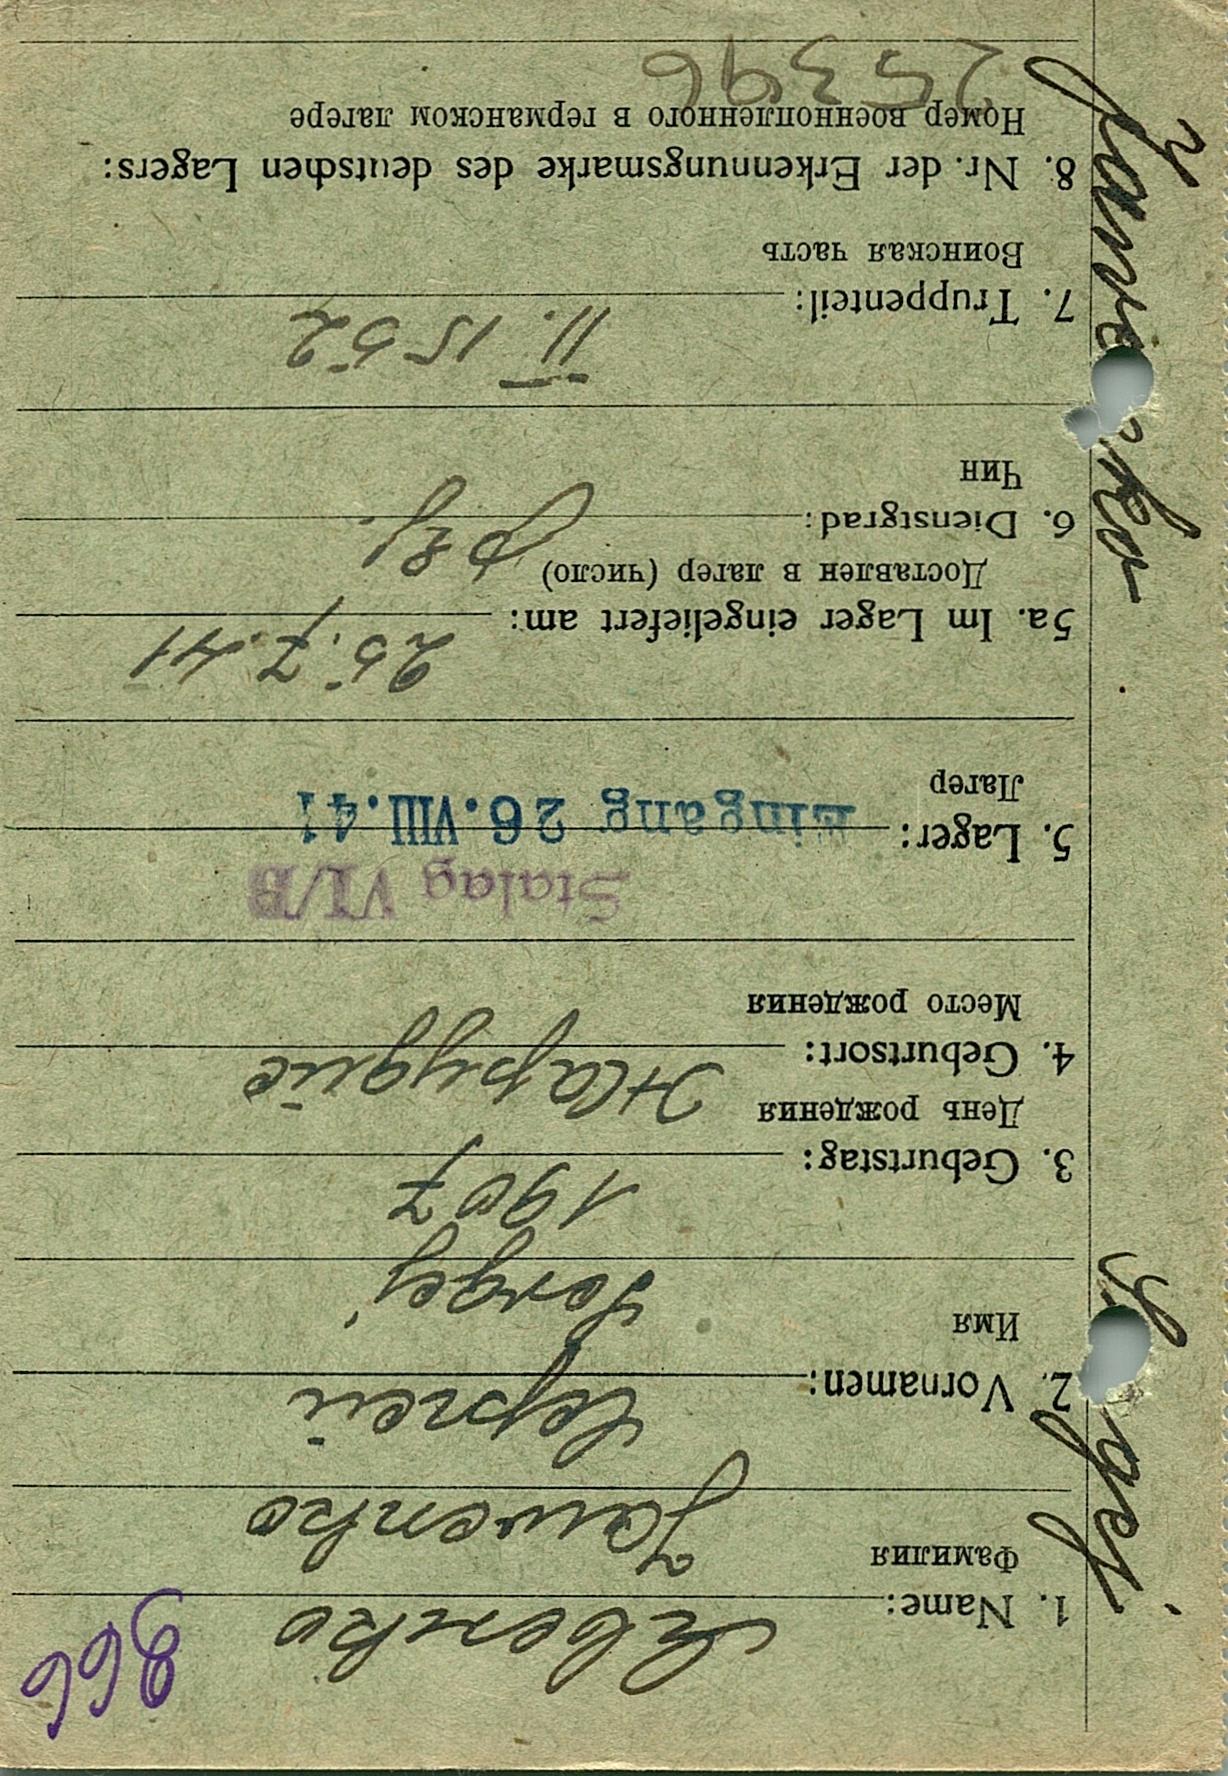 866
1. Name: Явенко
Фамилия
Jawenko
2. Vornamen: Сергей
Имя
Sergej
3. Geburtstag: 1907
День рождения
4. Geburtsort:
Место рождения
Stalag VI/B
5. Lager: Eingang 26.VIII.41
Лагер
25.7.41
5a. Im Lager eingeliefert am:
Доставлен в лагер (число)
6. Dienstgrad:
Чин
II. 1552
7. Truppenteil:
Воинская часть
8. Nr. der Erkennungsmarke des deutschen Lagers:
Номер военнопленного в германском лагере
25396
Sergej